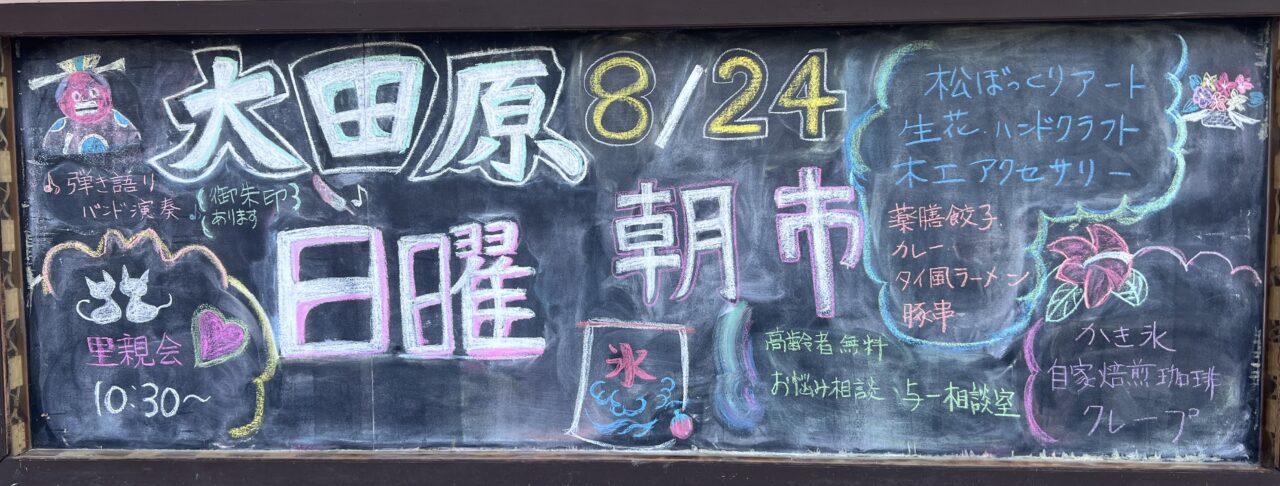 大田原 8/24
日曜 朝市
♪弾き語り
バンド演奏♪
御朱印
あります
里親会
10:30〜
氷
松ぼっくりアート
生花・ハンドクラフト
木工アクセサリー
薬膳餃子
カレー
タイ風ラーメン
豚串
高齢者無料
お悩み相談 与一相談室
かき氷
自家焙煎珈琲
クレープ